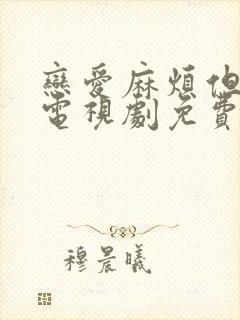 戀愛麻煩但
電視劇免費
穆晨曦